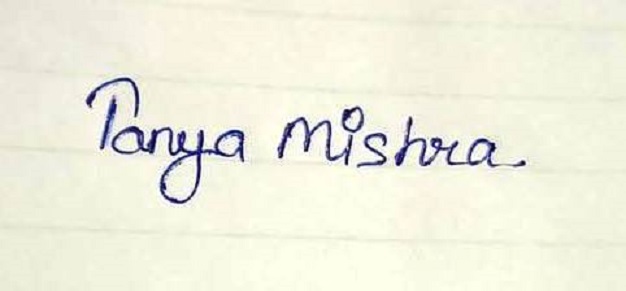 Tanya Mishra.